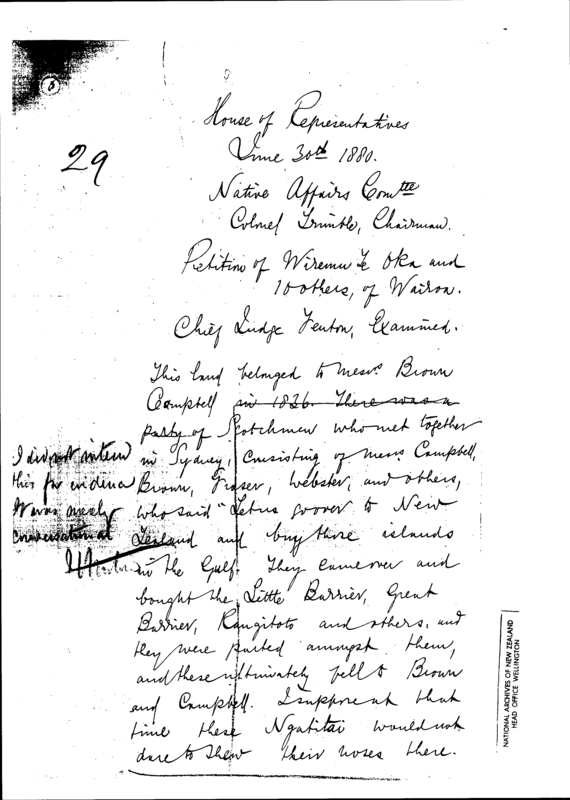 8
29
House of Representatives
June 30th 1880.
Native Affairs Comttee
Colonel Trimble, Chairman.
Petition of Wiremu Te Oka and
10 others, of Wairoa.
Chief Judge Fenton, Examined.
This land belonged to Messrs Brown
Campbell in 1836. There was a
party of Scotchmen who met together
in Sydney, consisting of Messrs Campbell,
Brown, Fraser, Webster, and others,
who said "Let us go over to New
Zealand and buy those islands
in the Gulf. They came over and
bought the Little Barrier, Great
Barrier, Rangitoto and others, and
they were parted amongst them,
and these ultimately fell to Brown
and Campbell. I suppose at that
time these Ngatitai would not
dare to shew their noses there.
I did not intend
this for evidence
It was merely
conversational
NATIONAL ARCHIVES OF NEW ZEALAND
HEAD OFFICE WELLINGTON